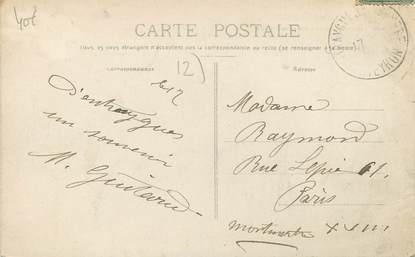 40€
CARTE POSTALE
Tous les pays étrangers n'acceptent pas la correspondance au recto (se renseigner à la poste)
CORRESPONDANCE
12)
D'entraygues
un souvenir
M. Guitard
Madame
Raymond
Rue Lepic 61.
Paris
Montmartre XVIII
AVEYRON